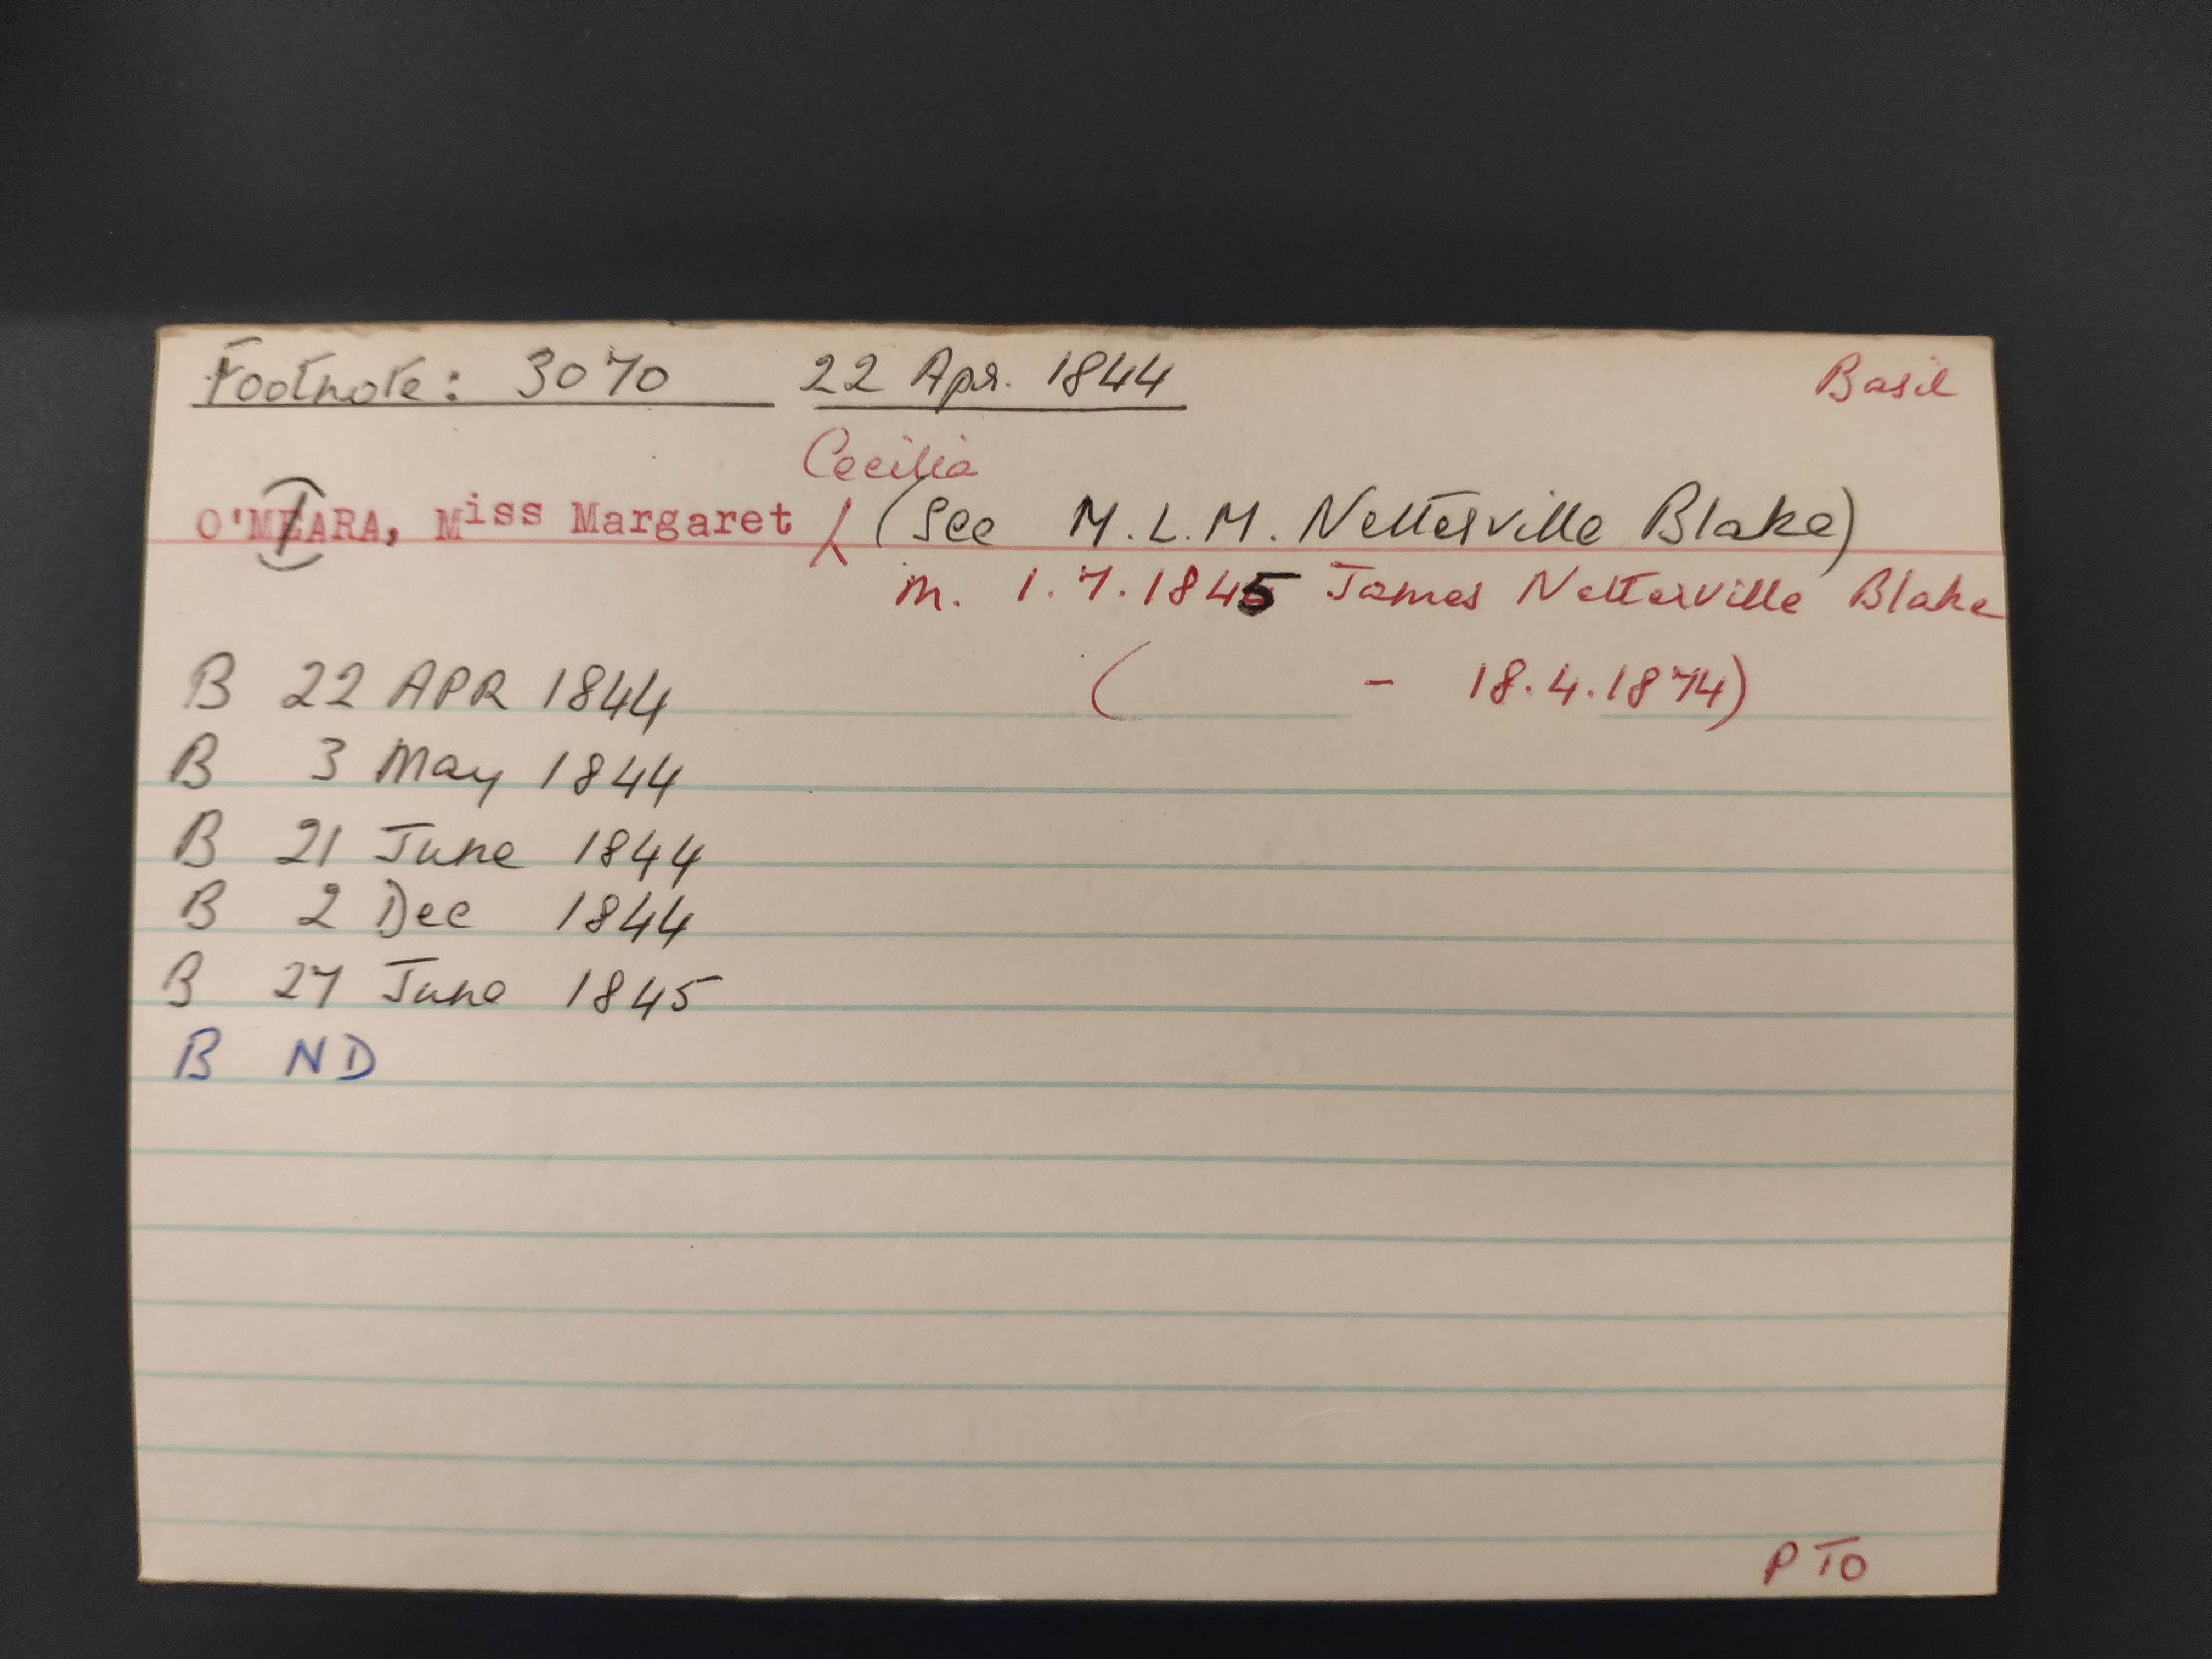 Footnote: 3070 22 Apr. 1844 Basil
Cecilia
O'MEARA, Miss Margaret (See M.L.M. Netterville Blake)
m. 1.7.1845 James Netterville Blake
( - 18.4.1874)
B 22 APR 1844
B 3 May 1844
B 21 June 1844
B 2 Dec 1844
B 27 June 1845
B ND
PTO